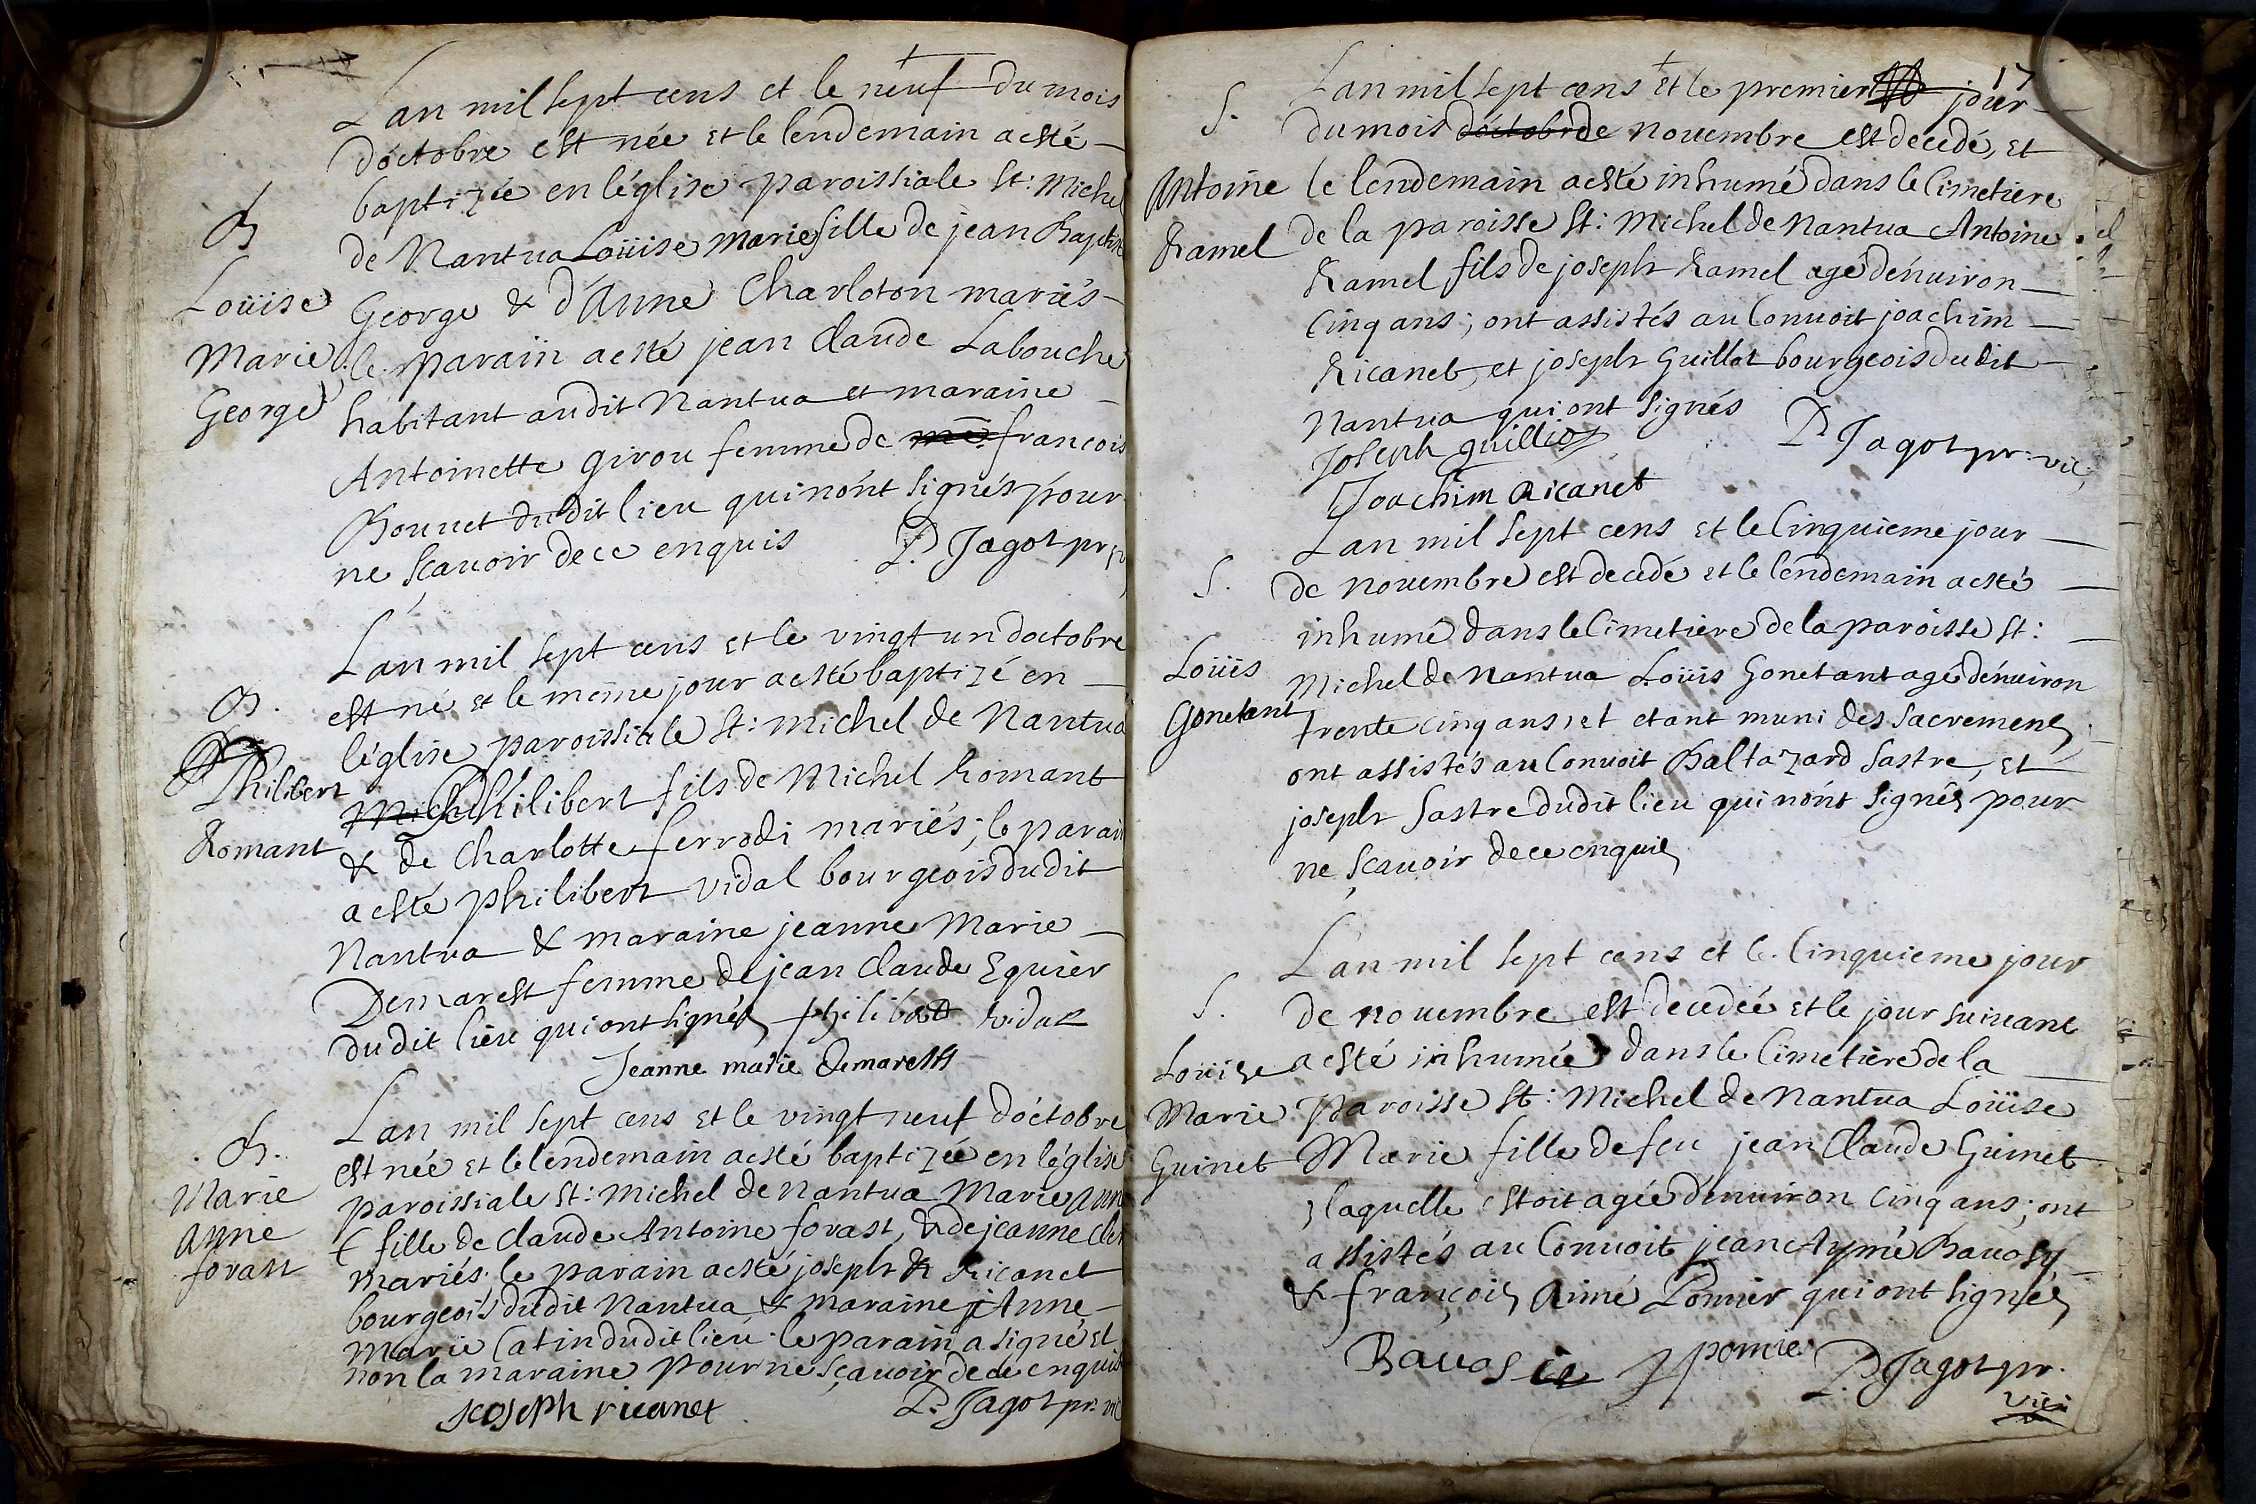 Lan mil sept cens et le neuf du mois
dóctobre est née et le lendemain a esté
B
baptizée en léglise paroissiale St: Michel
de Nantua Loüise Marie fille de jean Baptiste
Loüise
George & d'Anne Charloton mariés
Marie
le parain a esté jean Claude Labouche
George
habitant audit Nantua et maraine
Antoinette girou femme de francois
Bouuet dudit lieu qui nónt signés pour
ne sçauoir de ce enquis P. Jagot pr
Lan mil sept cens et le vingt un doctobre
B.
est né et le méme jour a esté baptizé en
léglise paroissiale St: Michel de Nantua
Philibert
Philibert fils de Michel Romant
Romant
& de Charlotte ferrodi mariés; le parain
a esté philibert vidal bourgeois dudit
Nantua & maraine jeanne Marie
Demarest femme de jean Claude Eguier
dudit lieu qui ont signés philibert vidal
Jeanne marie demarest
Lan mil sept cens et le vingt neuf dóctobre
. B.
est née et le lendemain a esté baptizée en léglise
Marie
paroissiale St: Michel de Nantua Marie Anne
Anne
fille de Claude Antoine forast, & de jeanne
forast
mariés. le parain a esté joseph Ricanet
bourgeois dudit Nantua & maraine Anne
Marie Catin dudit lieu. le parain a signé et
non la maraine pour ne sçauoir de ce enquis
joseph ricanet P. Jagot pr. vic
17
Lan mil sept cens et le premier jour
S.
du mois doctobre de nouembre est decedé, et
Antoine
le lendemain a esté inhumé dans le Cimetiere
Ramel
de la paroisse St: Michel de Nantua Antoine
Ramel fils de joseph Ramel agé dénuiron
Cinq ans; ont assistés au Conuoit joachim
Ricanet, et joseph Guillot bourgeois dudit
Nantua qui ont signés
Joseph guilliot P Jagot pr: vic,
Joachim Ricanet
Lan mil sept cens et le Cinquieme jour
S.
de nouembre est decedé et le lendemain a esté
inhumé dans le Cimetiere de la paroisse St:
Loüis
Michel de Nantua Loüis Gonetant agé dénuiron
Gonetant
trente cinq ans, et etant muni des sacremens
ont assistés au Conuoit Baltazard Sastre, et
joseph Sastre dudit lieu qui nónt signés pour
ne sçauoir de ce enquis
Lan mil sept cens et le Cinquieme jour
S.
de nouembre est decedée et le jour suiuant
Loüise
a esté inhumée dans le Cimetiere de la
Marie
paroisse St: Michel de Nantua Loüise
Guinet
Marie fille de feu jean Claude Guinet
laquelle estoit agée dénuiron cinq ans; ont
assistés au Conuoit jean Aymé Bauosy
& françois Aimé Pomier qui ont signés
Bauosie pomier P. Jagot pr.
vic: